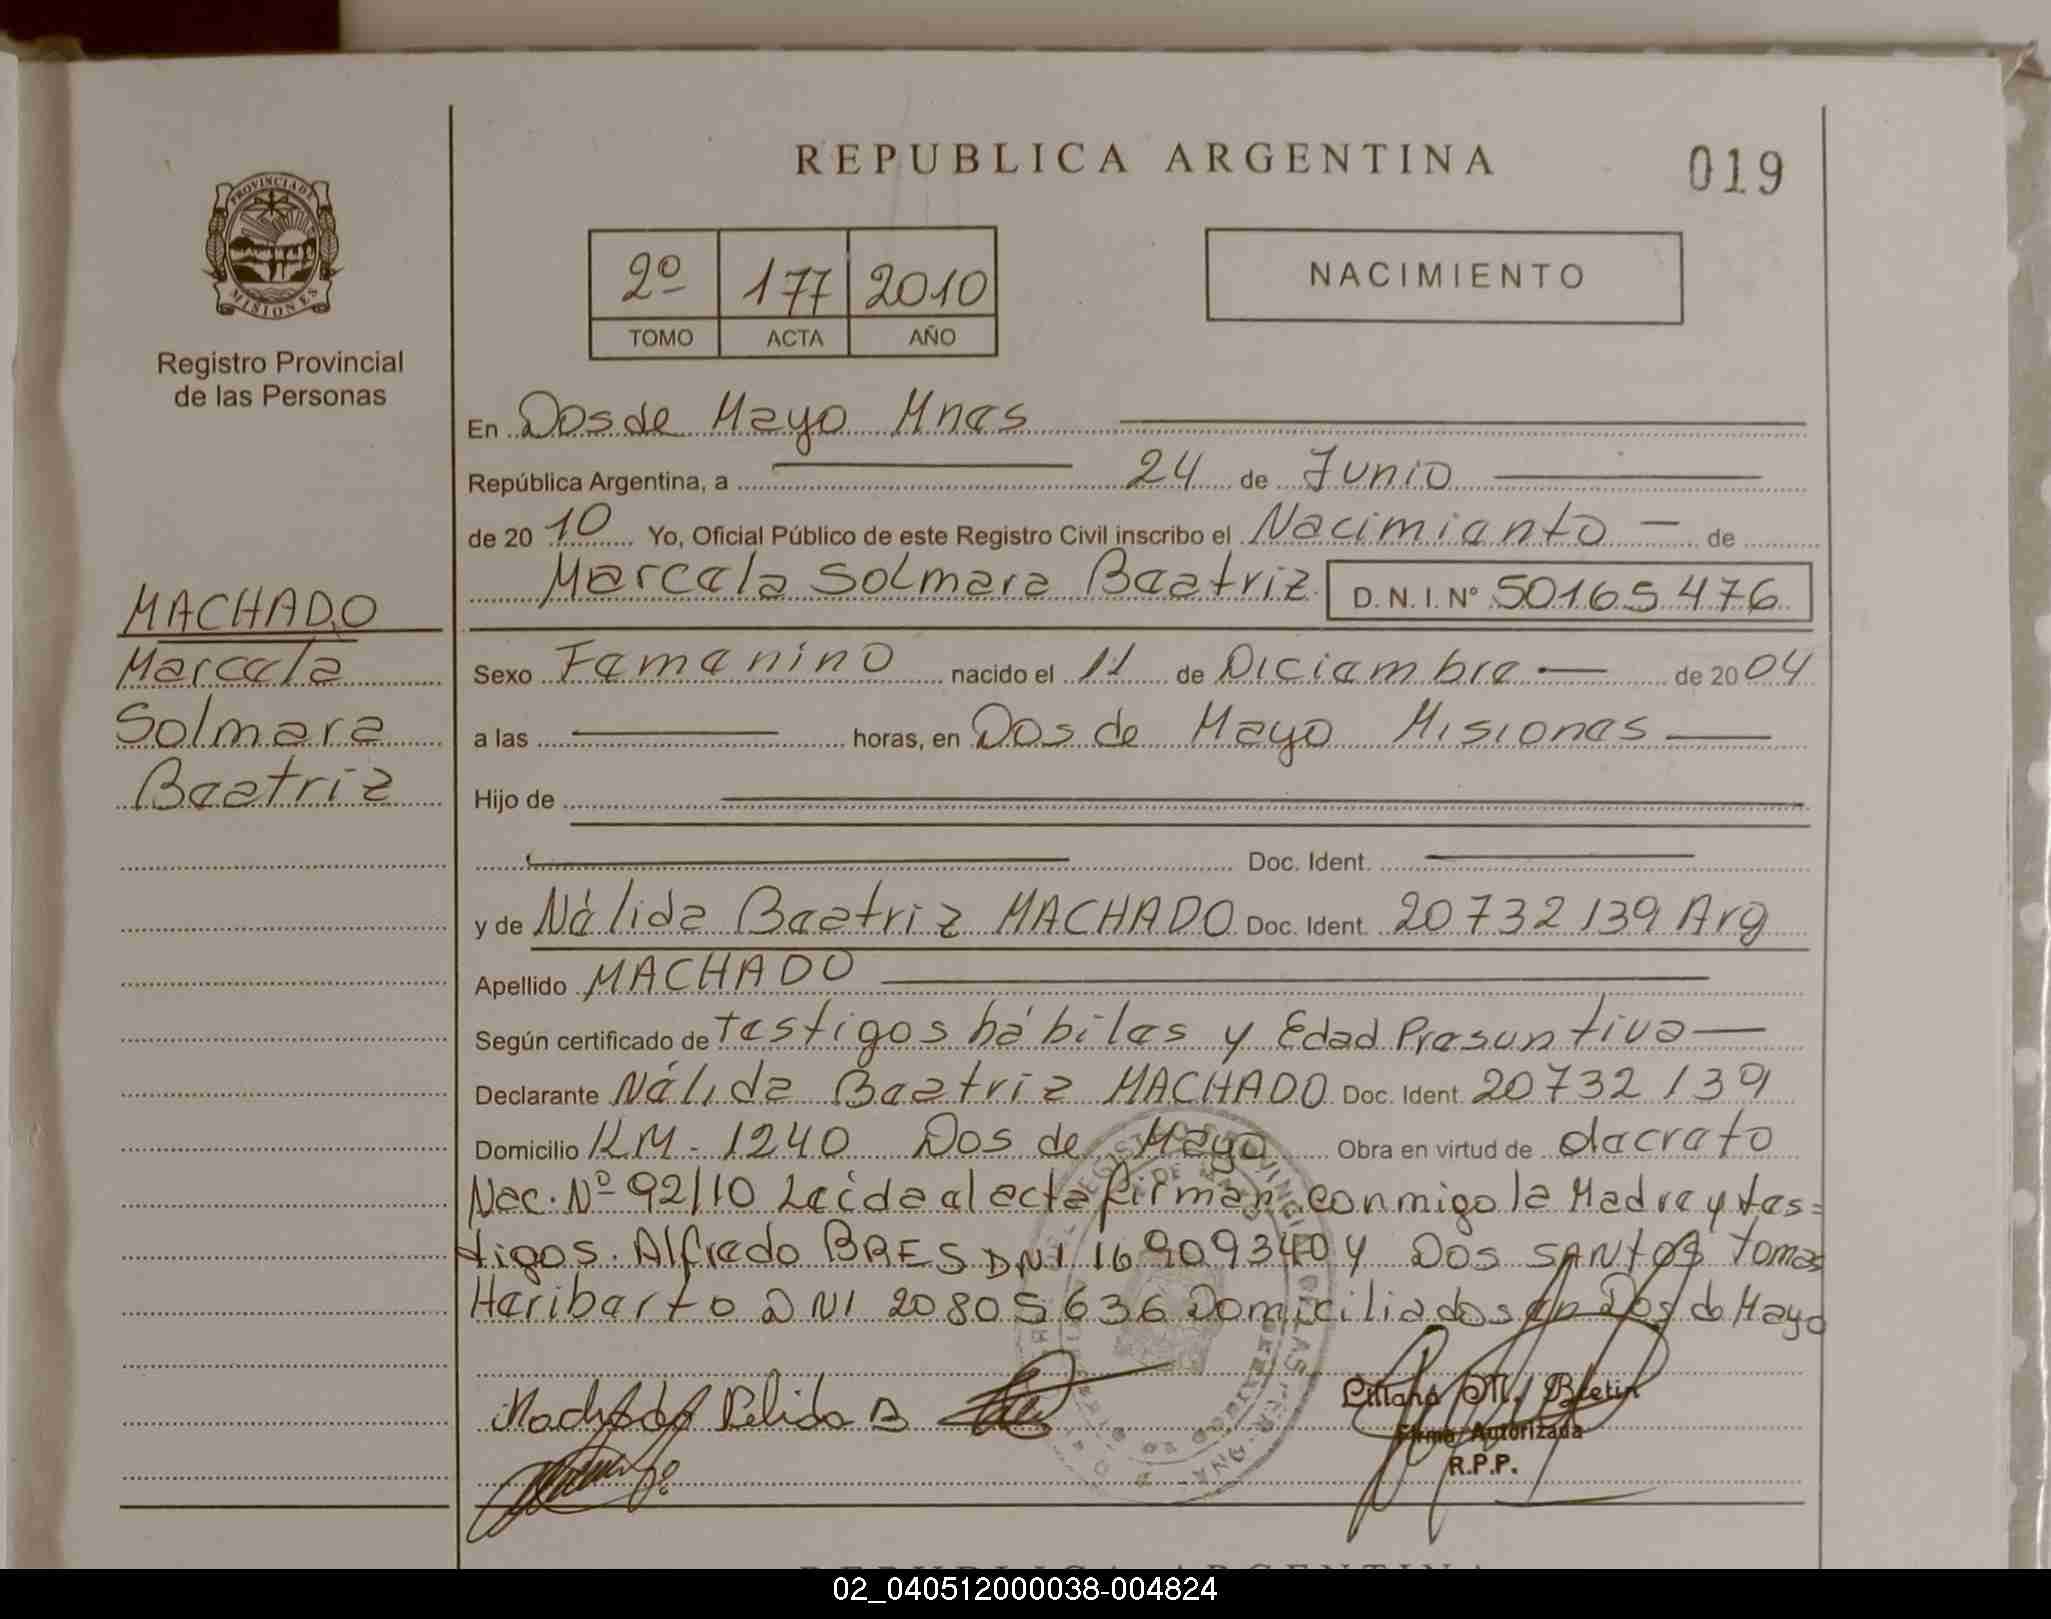 REPUBLICA ARGENTINA
019
PROVINCIA DE
MISIONES
Registro Provincial
de las Personas
2º 177 2010
TOMO ACTA AÑO
NACIMIENTO
En Dos de Mayo Mnes
República Argentina, a 24 de Junio
de 20 10 Yo, Oficial Público de este Registro Civil inscribo el Nacimiento — de
Marcela Solmara Beatriz D.N.I. Nº 50165476
MACHADO
Marcela
Solmara
Beatriz
Sexo Femenino nacido el 11 de Diciembre — de 20 04
a las horas, en Dos de Mayo Misiones
Hijo de
Doc. Ident.
y de Nélida Beatriz MACHADO Doc. Ident. 20732139 Arg
Apellido MACHADO
Según certificado de testigos hábiles y Edad Presuntiva
Declarante Nélida Beatriz MACHADO Doc. Ident. 20732139
Domicilio KM. 1240 Dos de Mayo Obra en virtud de decreto
Nac. Nº 92/10 Leída el acta firman conmigo la Madre y tes=
tigos. Alfredo BRES DNI 16909340 y Dos SANtos Tomas
Heriberto DNI 20805636 Domiciliados en Dos de Mayo
Machado Nelida B
Liliana M. Bletin
Firma Autorizada
R.P.P.
REPUBLICA ARGENTINA
02_040512000038-004824